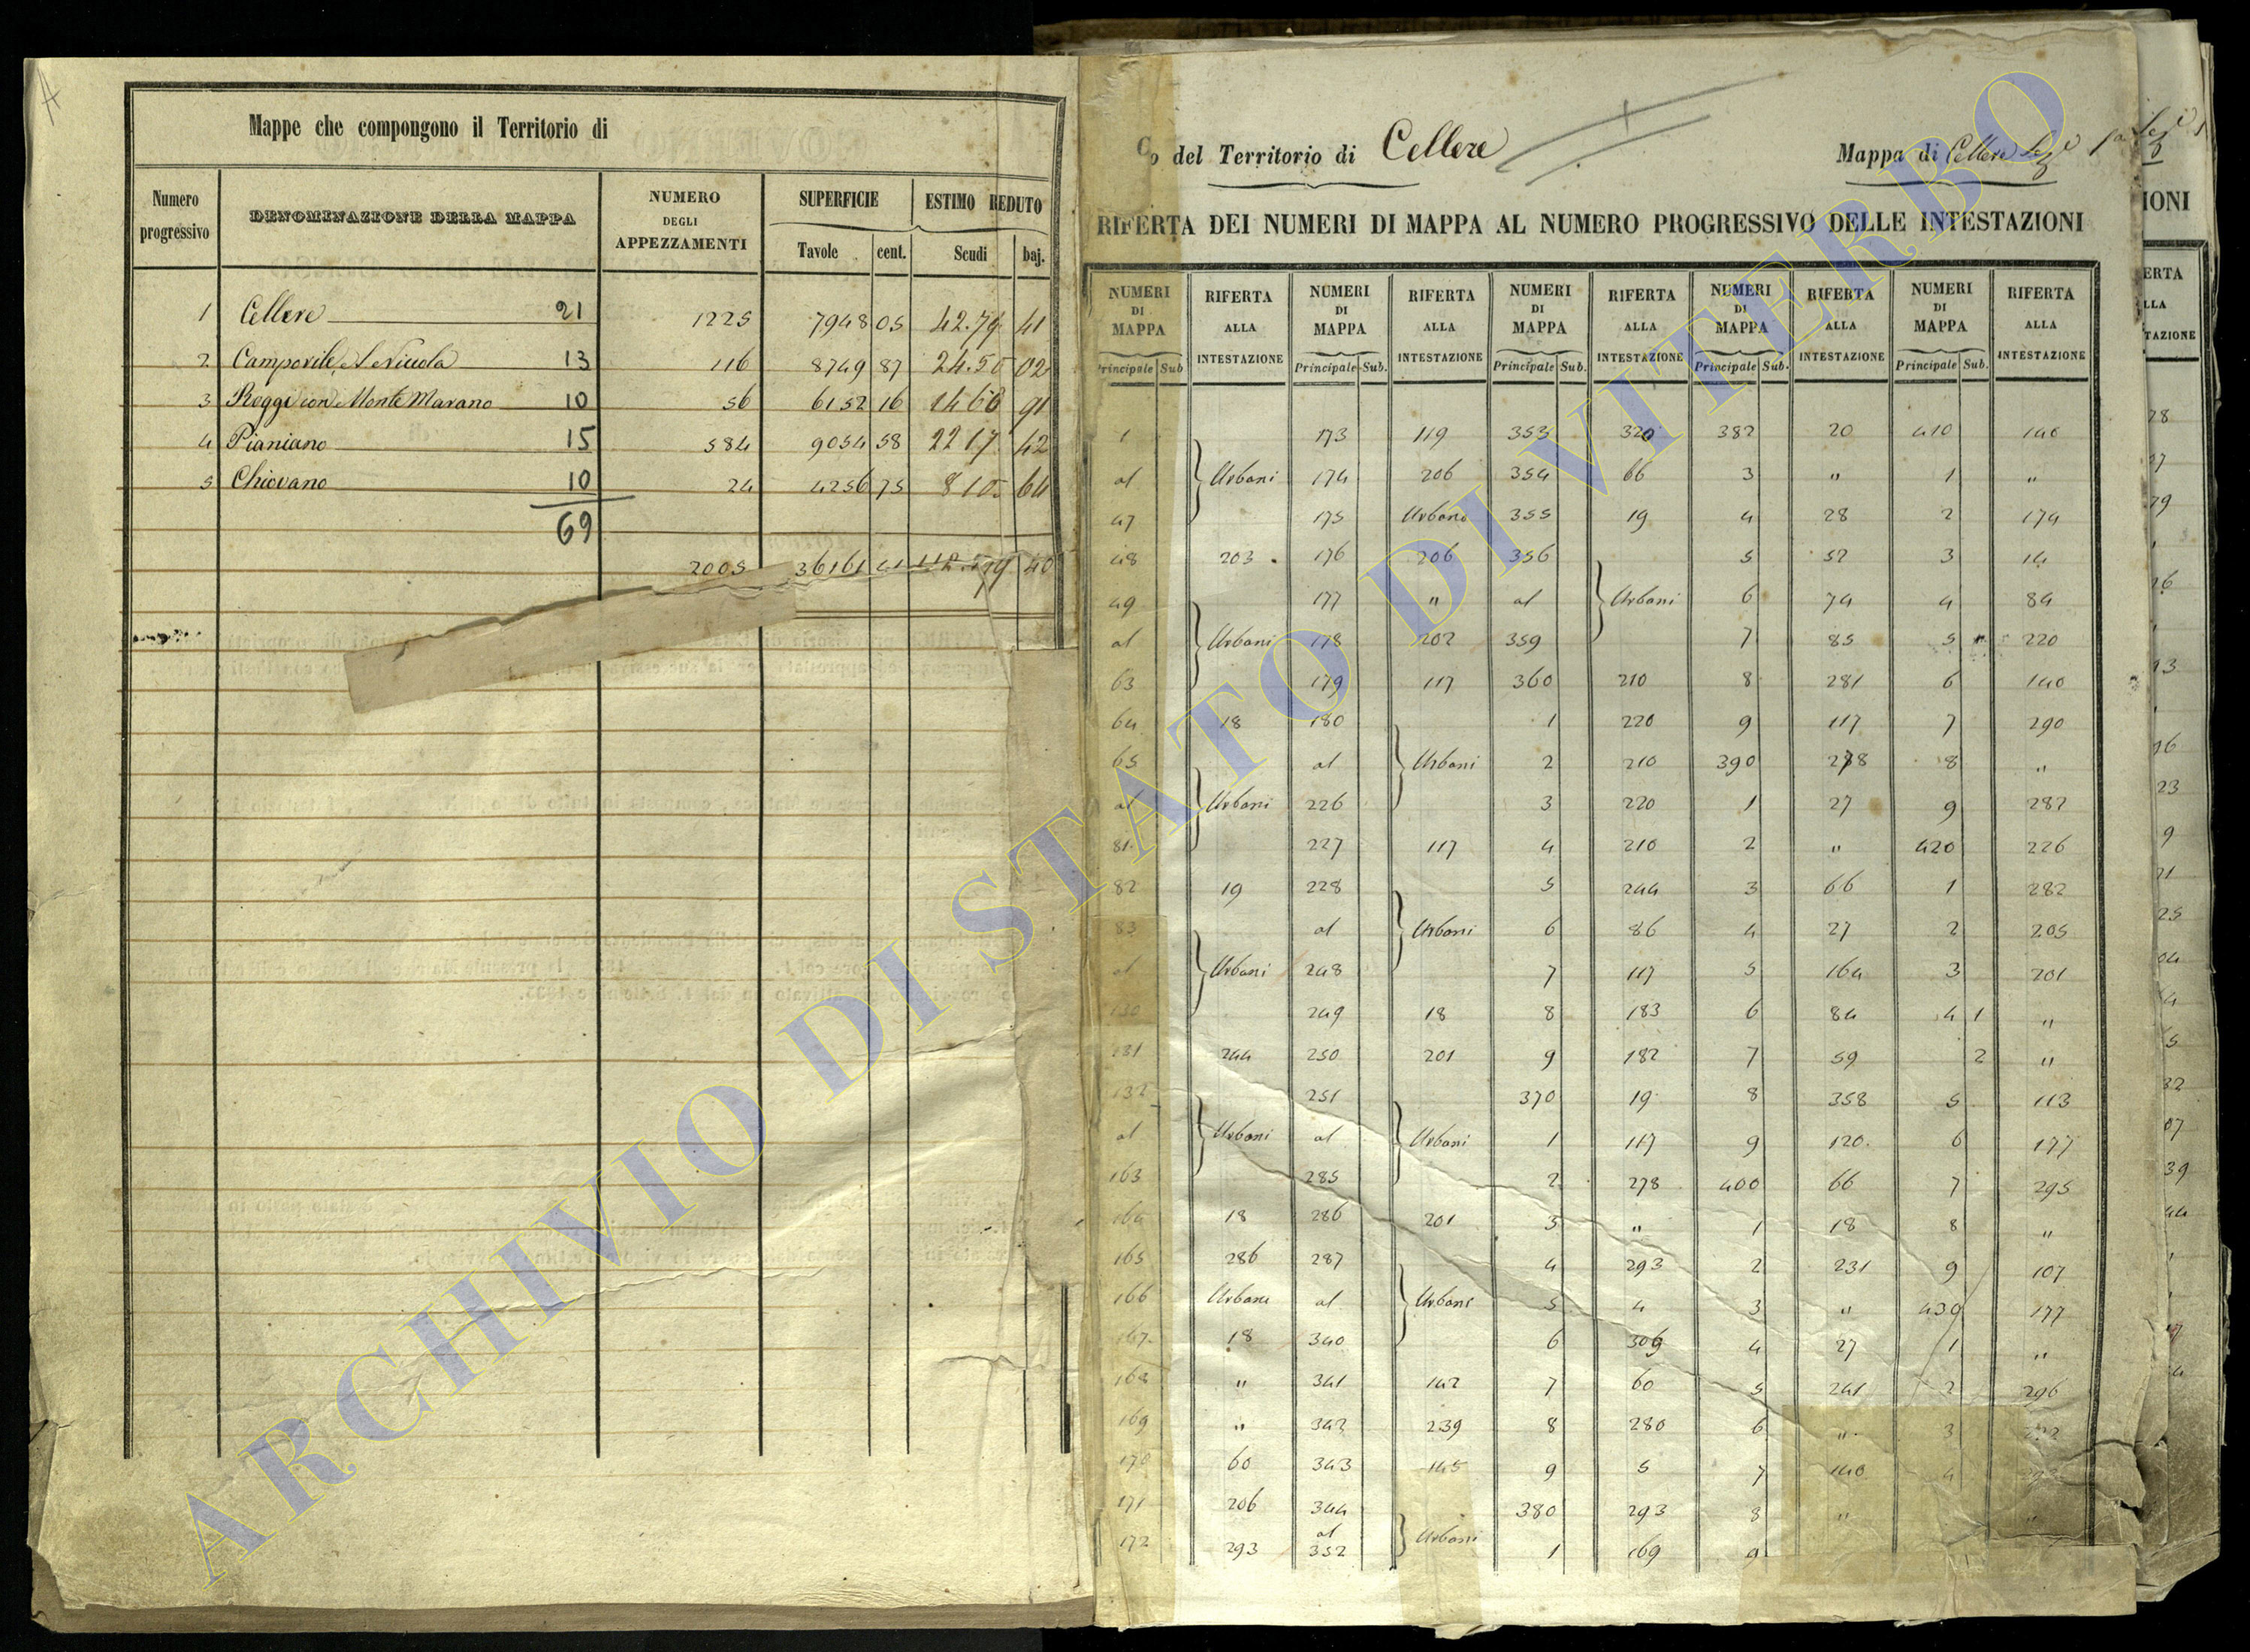 Mappe che compongono il Territorio di
Numero progressivo | DENOMINAZIONE DELLA MAPPA | NUMERO DEGLI APPEZZAMENTI | SUPERFICIE | ESTIMO REDUTO
Tavole | cent. | Scudi | baj.
1 Cellere 21 1225 7948 05 42.79 41
2 13 116 8749 87 24.50 02
3 Reggi con Monte Marano 10 56 6152 16 1460 91
4 Pianiano 15 584 9054 58 2217 42
5 Chiovano 10 24 4256 75 8105 64
69
2005 36161 40
del Territorio di Cellere
Mappa di Cellere
RIFERTA DEI NUMERI DI MAPPA AL NUMERO PROGRESSIVO DELLE INTESTAZIONI
NUMERI DI MAPPA | RIFERTA ALLA INTESTAZIONE | NUMERI DI MAPPA | RIFERTA ALLA INTESTAZIONE | NUMERI DI MAPPA | RIFERTA ALLA INTESTAZIONE | NUMERI DI MAPPA | RIFERTA ALLA INTESTAZIONE | NUMERI DI MAPPA | RIFERTA ALLA INTESTAZIONE
Principale Sub | Principale Sub. | Principale Sub. | Principale Sub. | Principale Sub.
1 173 119 353 320 382 20 410 146
al Urbani 174 206 354 66 3 " 1 "
47 175 Urbano 355 19 4 28 2 174
48 203 176 206 356 5 52 3 14
49 177 " al Urbani 6 74 4 84
al Urbani 178 202 359 7 85 5 220
63 179 117 360 210 8 281 6 140
64 18 180 1 220 9 117 7 290
65 al Urbani 2 210 390 278 8 "
al Urbani 226 3 220 1 27 9 287
81 227 117 4 210 2 " 420 226
82 19 228 5 244 3 66 1 282
83 al Urbani 6 86 4 27 2 205
al Urbani 248 7 117 5 164 3 201
130 249 18 8 183 6 84 4 1 "
131 244 250 201 9 182 7 59 2 "
132 251 370 19 8 358 5 113
al Urbani al Urbani 1 117 9 120 6 177
163 285 2 278 400 66 7 295
164 18 286 201 3 " 1 18 8 "
165 286 287 4 293 2 231 9 107
166 Urbani al Urbani 5 4 3 " 430 177
167 18 340 6 309 4 27 1 "
168 " 341 142 7 60 5 241 2 296
169 " 342 239 8 280 6 " 3
170 60 343 145 9 5 7 140 4
171 206 344 380 293 8 "
172 293 al 352 Urbani 1 169 9
IONI
ERTA
LLA
TAZIONE
ARCHIVIO DI STATO DI VITERBO